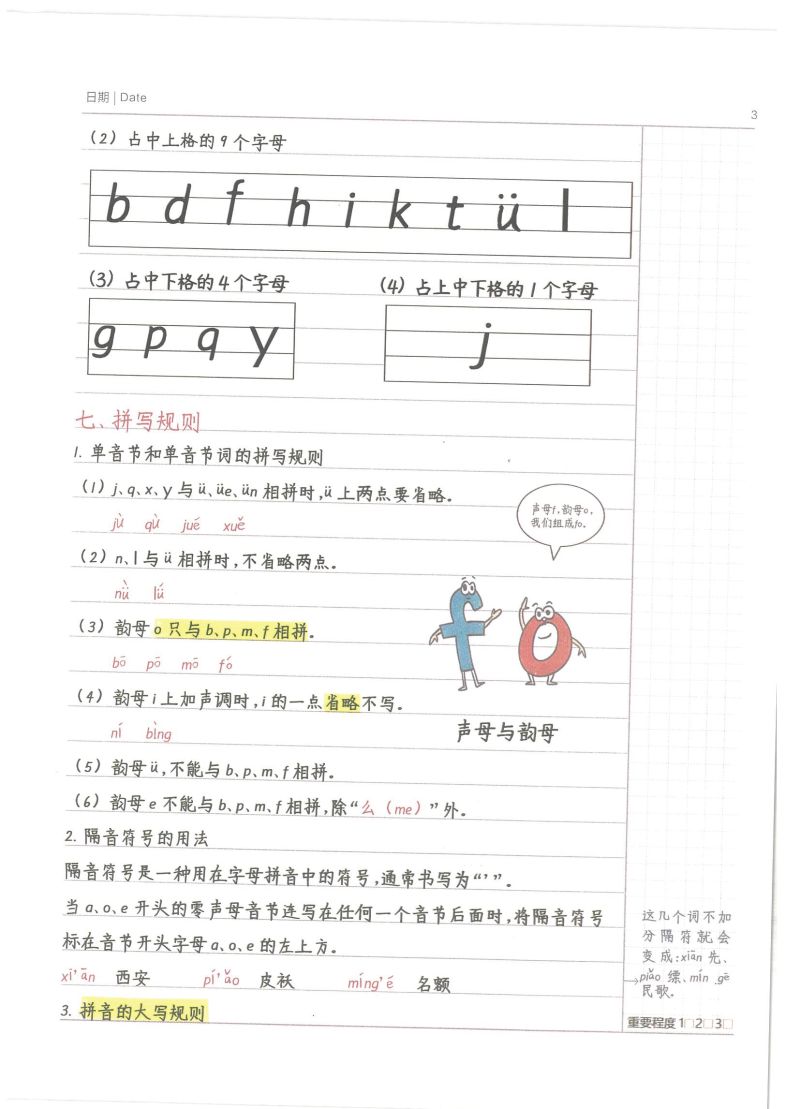 日期 | Date
3
（2）占中上格的9个字母
b d f h i k t ü l
（3）占中下格的4个字母
（4）占上中下格的1个字母
g p q y
j
七、拼写规则
1. 单音节和单音节词的拼写规则
（1）j、q、x、y与ü、üe、ün相拼时,ü上两点要省略。
jù qù jué xuě
声母f,韵母o,
我们组成fo。
（2）n、l与ü相拼时,不省略两点。
nǜ lǘ
（3）韵母o只与b、p、m、f相拼。
bō pō mō fó
f o
（4）韵母i上加声调时,i的一点省略不写。
ní bìng
声母与韵母
（5）韵母ü,不能与b、p、m、f相拼。
（6）韵母e不能与b、p、m、f相拼,除“么（me）”外。
2. 隔音符号的用法
隔音符号是一种用在字母拼音中的符号,通常书写为“’”。
当a、o、e开头的零声母音节连写在任何一个音节后面时,将隔音符号
标在音节开头字母a、o、e的左上方。
xī’ān 西安 pí’ǎo 皮袄 míng’é 名额
这几个词不加
分隔符就会
变成:xiān先、
→piǎo缥、mín gē
民歌。
3. 拼音的大写规则
重要程度 1□2□3□